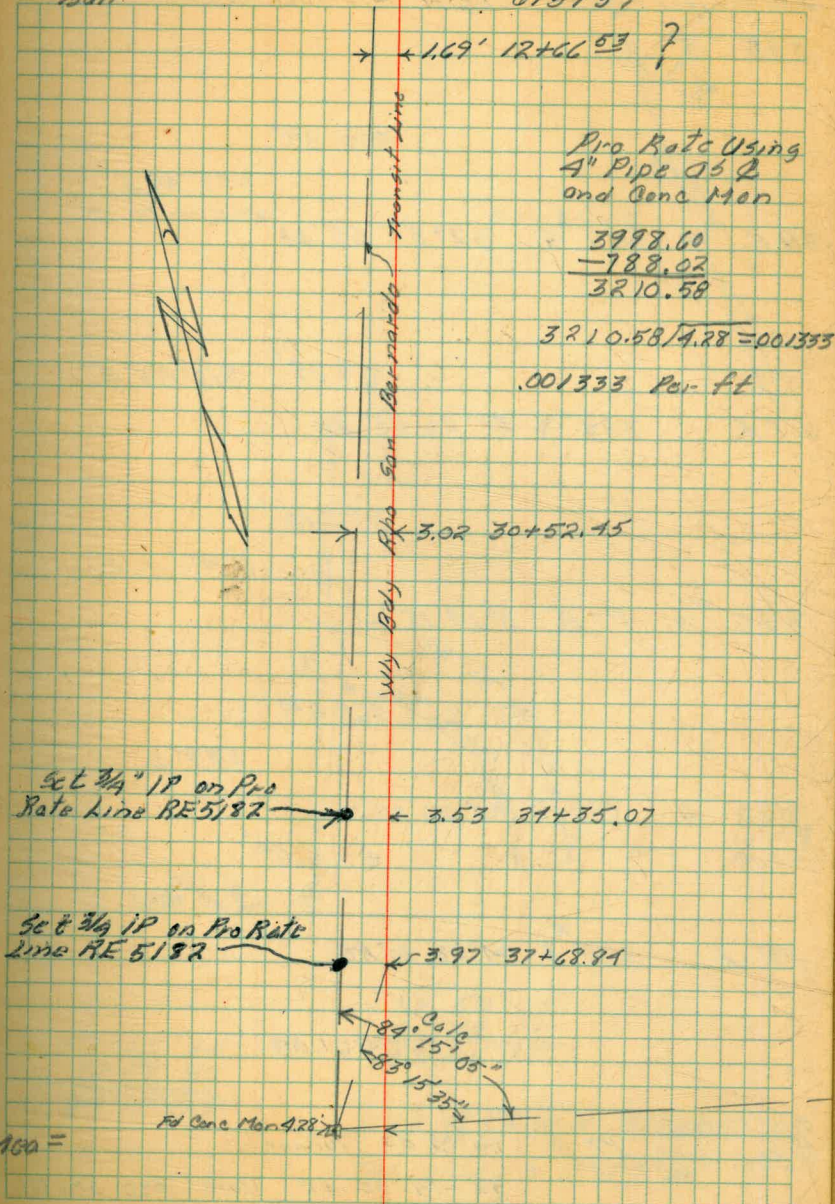 1.69' 12+66 53 ?
Pro Rate Using
4" Pipe as ℄
and Conc Mon
3998.60
-788.02
3210.58
3210.58/4.28 = .001333
.001333 Per ft
Wly Bdy Rho San Bernardo
Transit Line
3.02 30+52.45
Set 3/4" IP on Pro
Rate Line RE 5182
3.53 34+35.07
Set 3/4 IP on Pro Rate
Line RE 5182
3.97 37+68.84
84° Calc
15' 05"
83°
15' 35"
Fd Conc Mon 4.28'